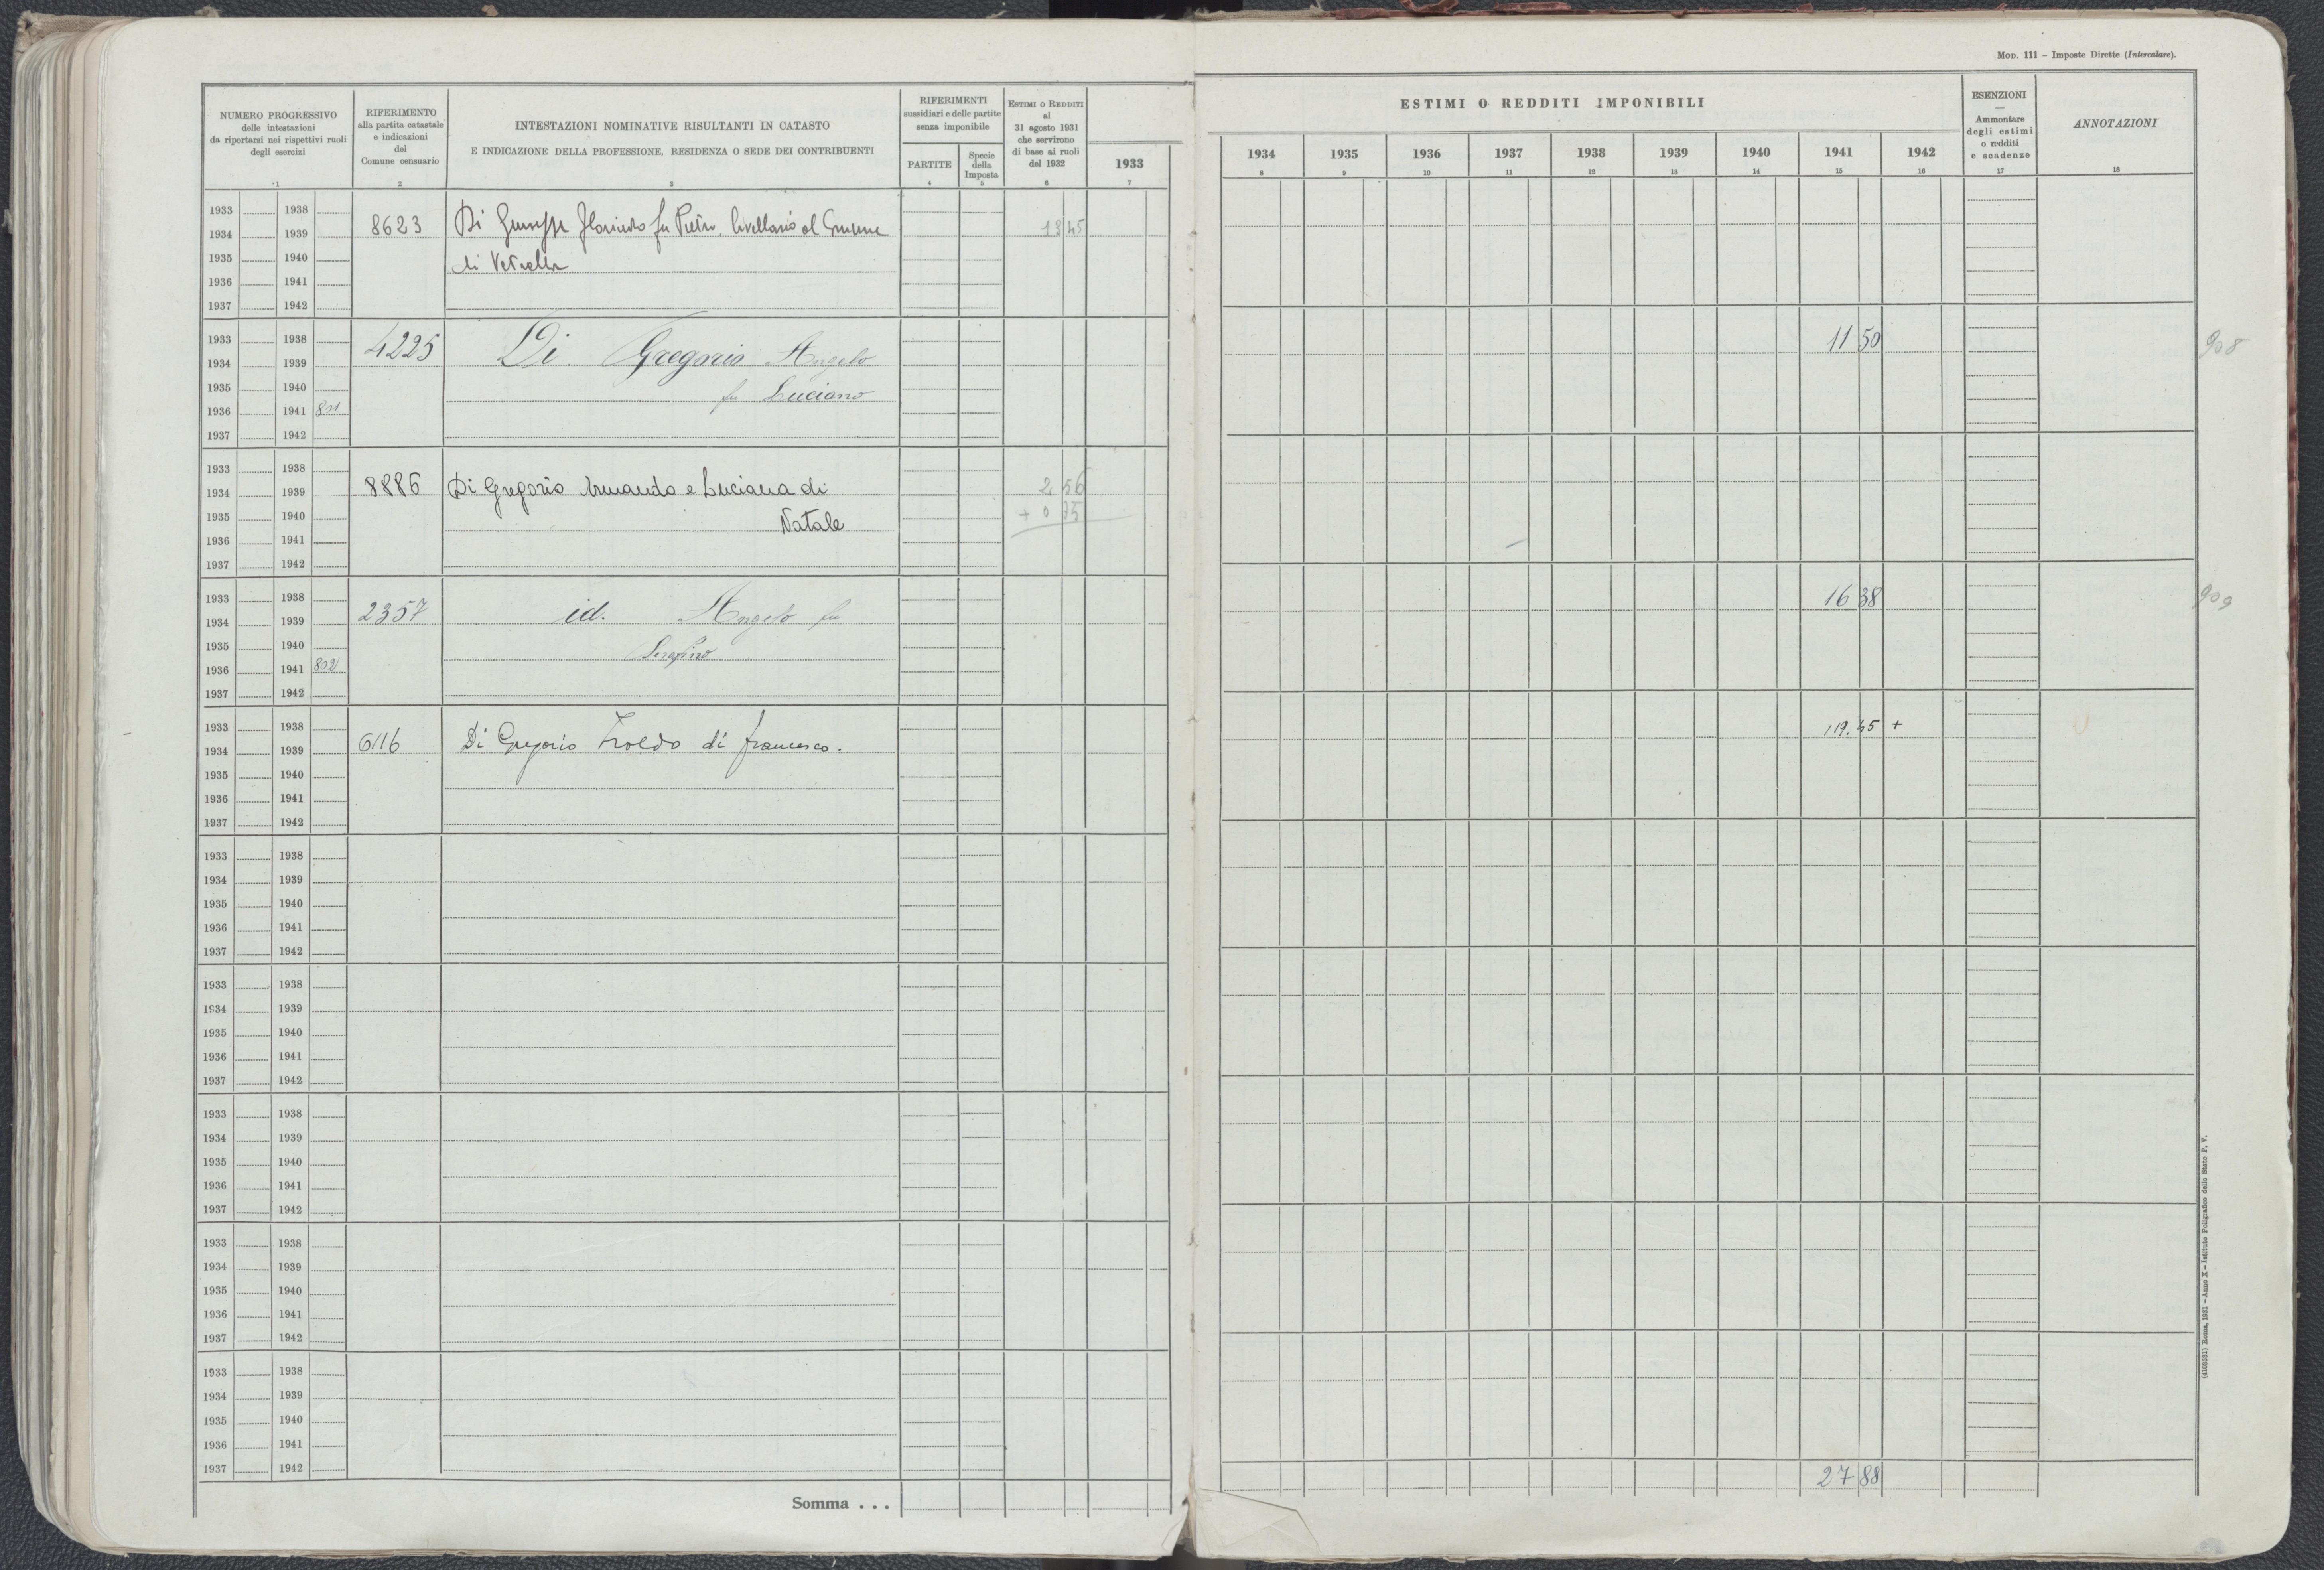 MOD. 111 – Imposte Dirette (Intercalare).
NUMERO PROGRESSIVO
delle intestazioni
da riportarsi nei rispettivi ruoli
degli esercizi
1
RIFERIMENTO
alla partita catastale
e indicazioni
del
Comune censuario
2
INTESTAZIONI NOMINATIVE RISULTANTI IN CATASTO
E INDICAZIONE DELLA PROFESSIONE, RESIDENZA O SEDE DEI CONTRIBUENTI
3
RIFERIMENTI
sussidiari e delle partite
senza imponibile
PARTITE
4
Specie
della
Imposta
5
ESTIMI O REDDITI
al
31 agosto 1931
che servirono
di base ai ruoli
del 1932
6
1933
7
ESTIMI O REDDITI IMPONIBILI
1934 1935 1936 1937 1938 1939 1940 1941 1942
8 9 10 11 12 13 14 15 16
ESENZIONI
—
Ammontare
degli estimi
o redditi
e scadenze
17
ANNOTAZIONI
18
1933 1938
1934 1939 8623 Di Giuseppe Florindo fu Pietro. livellario al Comune
1935 1940 di Vetralla
1936 1941
1937 1942
1933 1938 4225 Di Gregorio Angelo 11 50 908
1934 1939
1935 1940 fu Luciano
1936 1941 801
1937 1942
1933 1938
1934 1939 8886 Di Gregorio Armando e Luciana di 2 56
1935 1940 Natale + 0 75
1936 1941
1937 1942
1933 1938 2357 id. Angelo fu 16 38 909
1934 1939
1935 1940 Serafino
1936 1941 802
1937 1942
1933 1938 119.45 +
1934 1939 6116 Di Gregorio di Francesco.
1935 1940
1936 1941
1937 1942
1933 1938
1934 1939
1935 1940
1936 1941
1937 1942
1933 1938
1934 1939
1935 1940
1936 1941
1937 1942
1933 1938
1934 1939
1935 1940
1936 1941
1937 1942
1933 1938
1934 1939
1935 1940
1936 1941
1937 1942
1933 1938
1934 1939
1935 1940
1936 1941
1937 1942
Somma . . . 27 88
(4103031) Roma, 1931 – Anno X – Istituto Poligrafico dello Stato P. V.